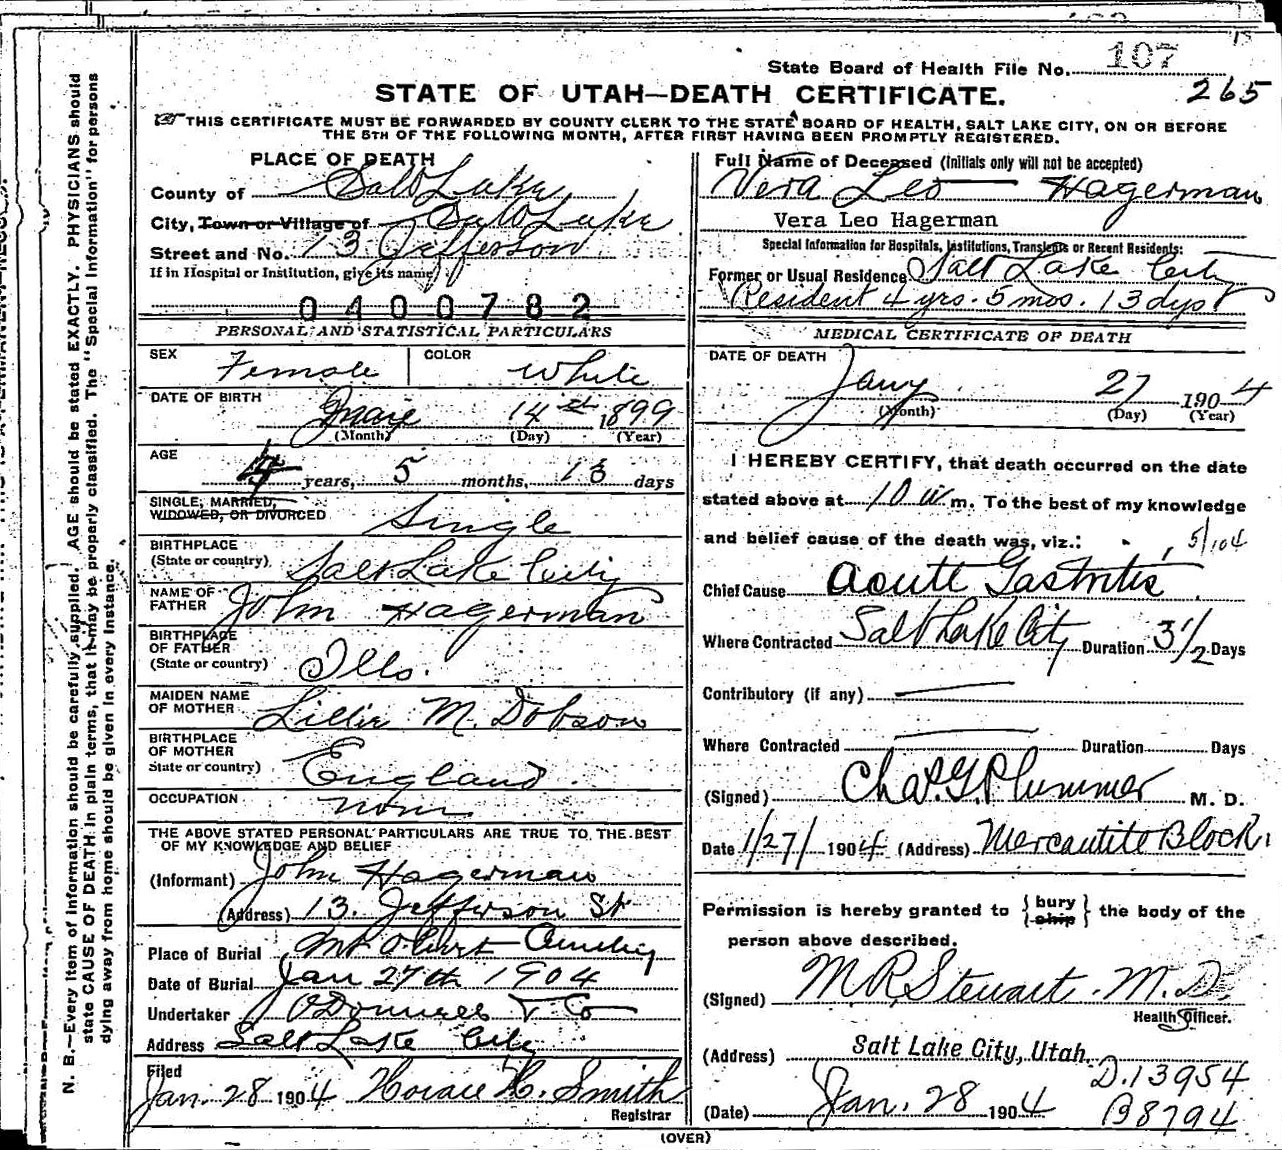 107
State Board of Health File No.
265
STATE OF UTAH—DEATH CERTIFICATE.
THIS CERTIFICATE MUST BE FORWARDED BY COUNTY CLERK TO THE STATE BOARD OF HEALTH, SALT LAKE CITY, ON OR BEFORE
THE 5TH OF THE FOLLOWING MONTH, AFTER FIRST HAVING BEEN PROMPTLY REGISTERED.
PLACE OF DEATH
County of Salt Lake
City, Town or Village of Salt Lake
Street and No. 13 Jefferson
If in Hospital or Institution, give its name
0400782
PERSONAL AND STATISTICAL PARTICULARS
SEX Female COLOR White
DATE OF BIRTH 14 1899
(Month) (Day) (Year)
AGE 4 years, 5 months, 13 days
SINGLE, MARRIED,
WIDOWED, OR DIVORCED Single
BIRTHPLACE
(State or country) Salt Lake City
NAME OF
FATHER John Hagerman
BIRTHPLACE
OF FATHER
(State or country) Ills.
MAIDEN NAME
OF MOTHER Lillie M. Dobson
BIRTHPLACE
OF MOTHER
State or country) England
OCCUPATION None
THE ABOVE STATED PERSONAL PARTICULARS ARE TRUE TO THE BEST
OF MY KNOWLEDGE AND BELIEF
(Informant) John Hagerman
(Address) 13. Jefferson St
Place of Burial Mt Olivet Cemetery
Date of Burial Jan 27th 1904
Undertaker O'Donnell & Co
Address Salt Lake City
Filed
Jan. 28 1904 Horace H. Smith
Registrar
Full Name of Deceased (Initials only will not be accepted)
Vera Leo Hagerman
Vera Leo Hagerman
Special Information for Hospitals, Institutions, Transients or Recent Residents:
Former or Usual Residence Salt Lake City
Resident 4 yrs. 5 mos. 13 dys
MEDICAL CERTIFICATE OF DEATH
DATE OF DEATH
Jany 27 1904
(Month) (Day) (Year)
I HEREBY CERTIFY, that death occurred on the date
stated above at 10 a m. To the best of my knowledge
and belief cause of the death was, viz.:
5/104
Chief Cause Acute Gastritis
Where Contracted Salt Lake City Duration 3 1/2 Days
Contributory (if any)
Where Contracted Duration Days
(Signed) Chas. G. Plummer M. D.
Date 1/27/1904 (Address) Mercantile Block.
Permission is hereby granted to {bury ship} the body of the
person above described.
(Signed) M R Stewart. M. D.
Health Officer.
(Address) Salt Lake City, Utah.
D.13954
(Date) Jan. 28 1904
B8794
(OVER)
N. B.—Every item of information should be carefully supplied. AGE should be stated EXACTLY. PHYSICIANS should
state CAUSE OF DEATH in plain terms, that it may be properly classified. The "Special Information" for persons
dying away from home should be given in every instance.